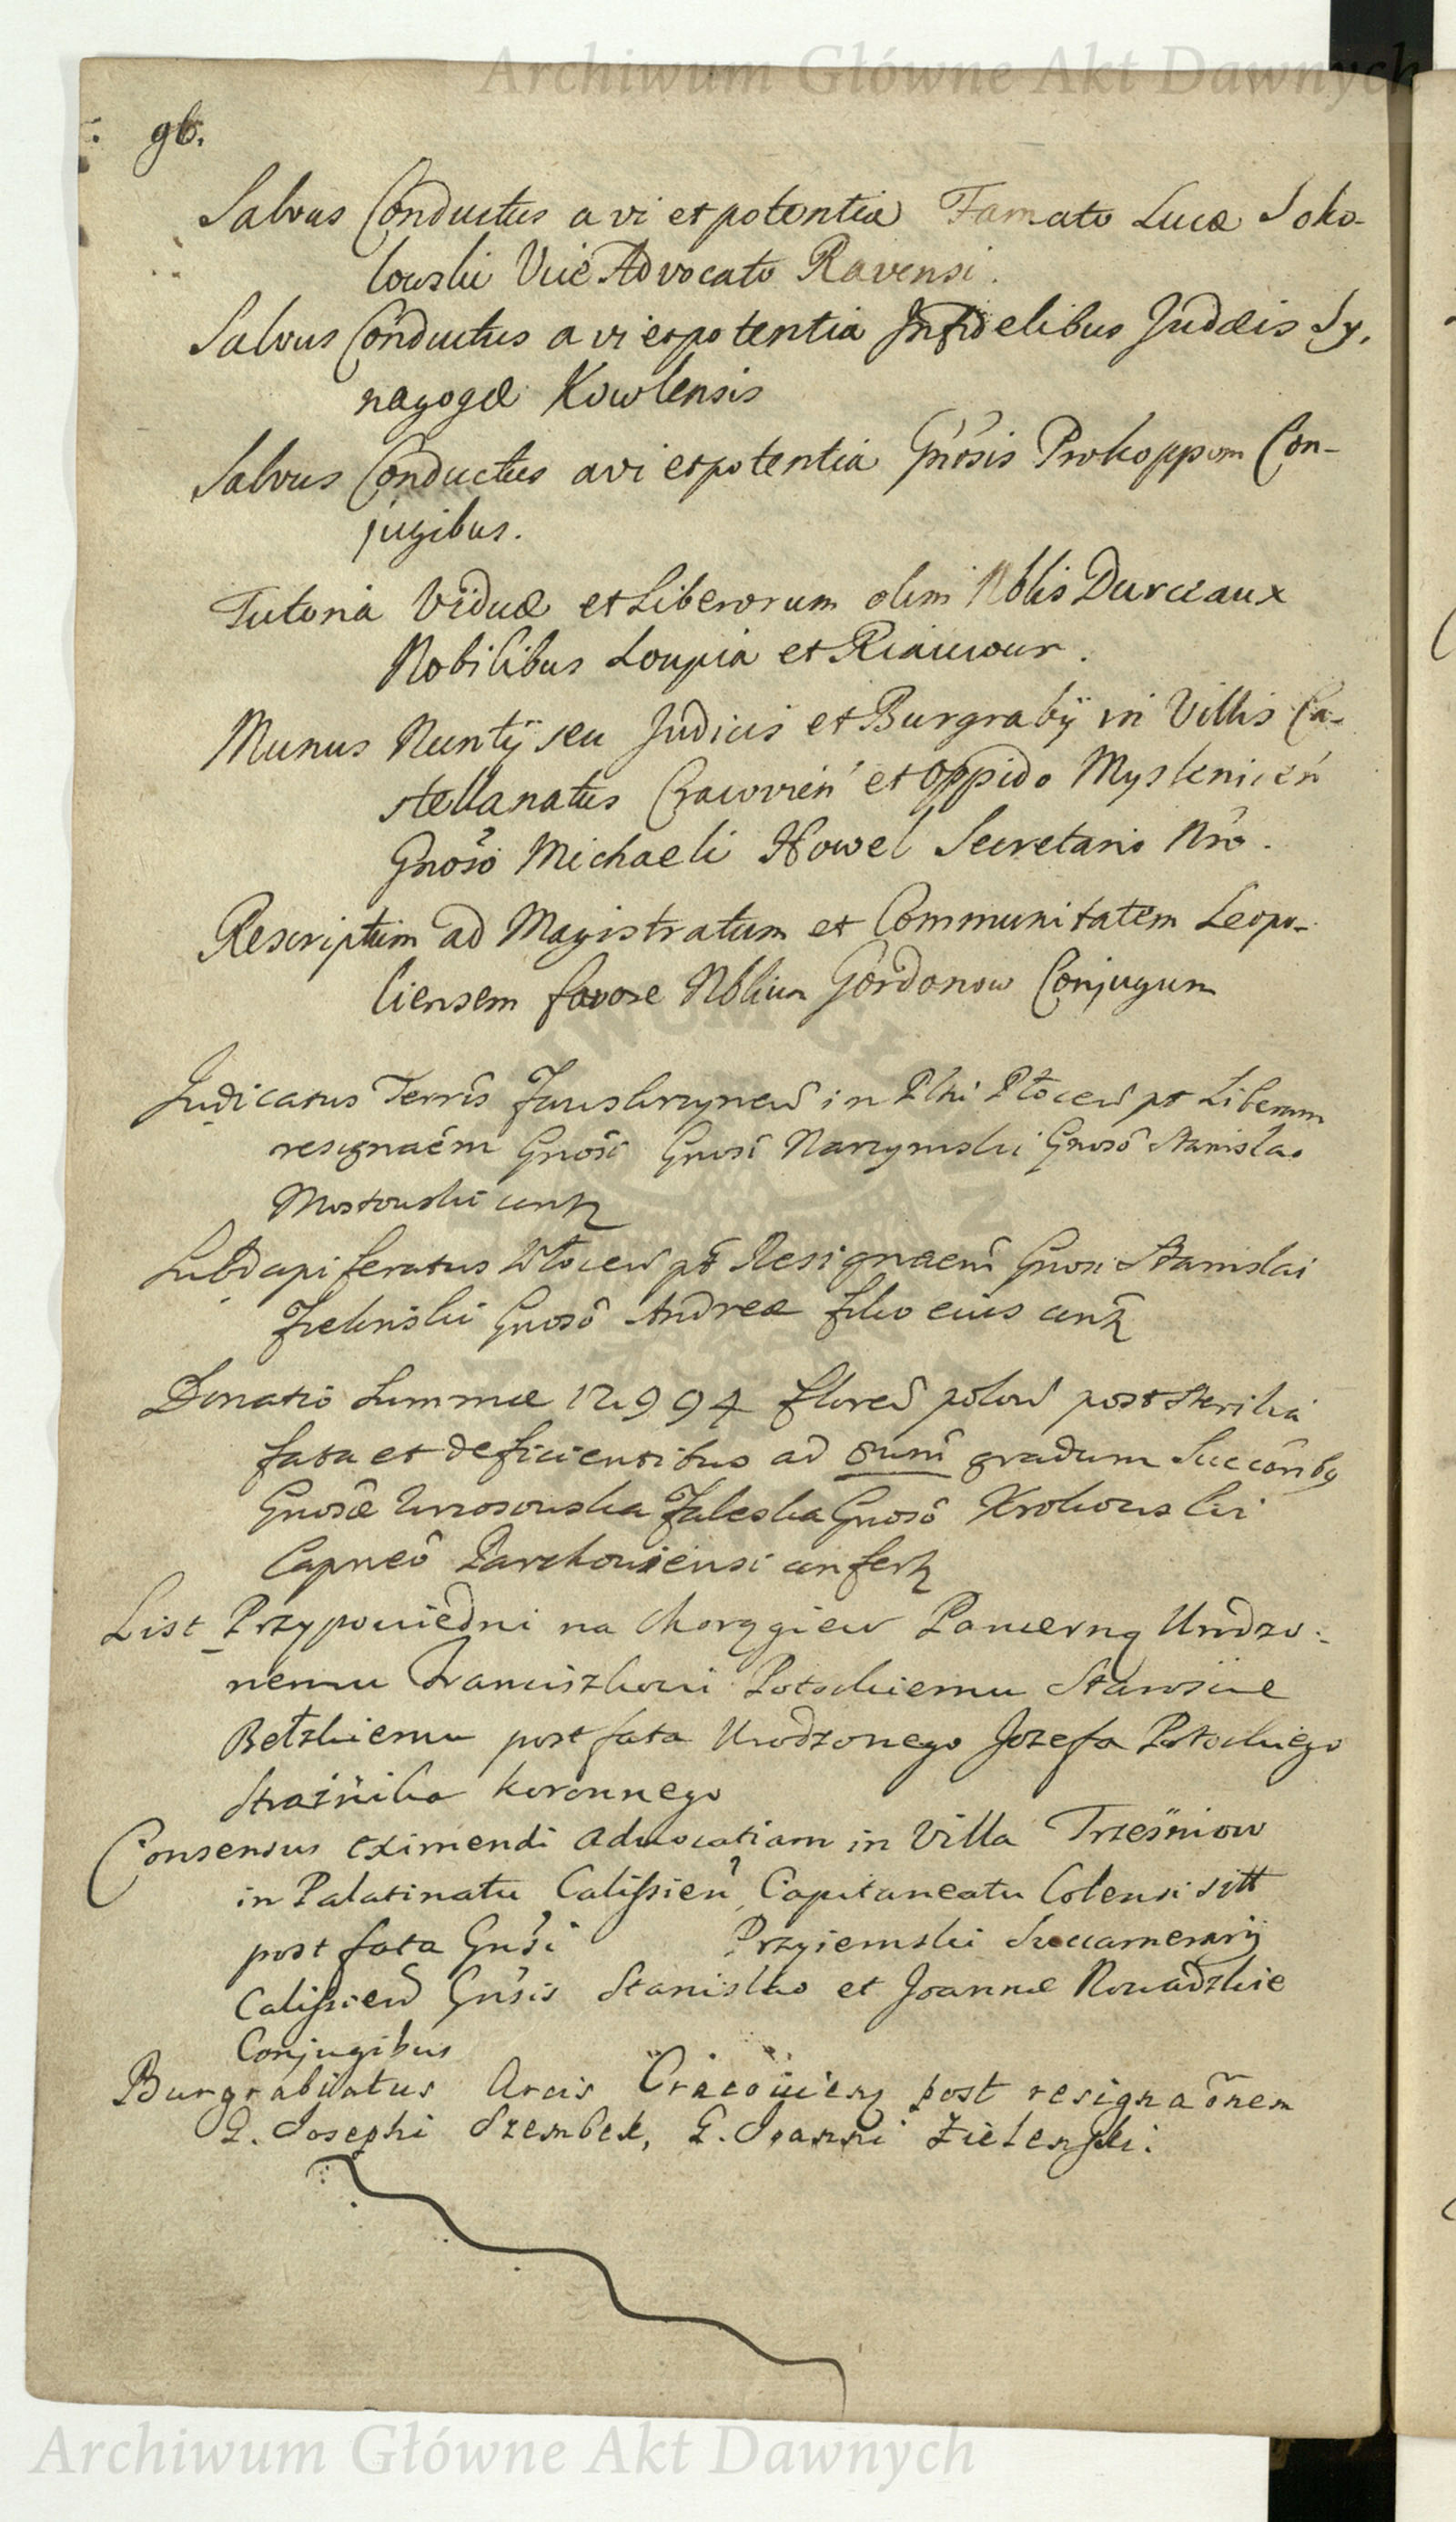 Archiwum Główne Akt Dawnych
96.
Salvus Conductus a vi et potentia Famato Lucæ Soko-
lowski Vice Advocato Ravensi.
Salvus Conductus a vi et potentia Infidelibus Judæis Sy,
nagogæ Kowlensis
Salvus Conductus a vi et potentia Gnosis Prokoppom Con-
jugibus.
Tutoria Viduæ et Liberorum olim Nblis Durceaux
Nobilibus Loupia et Riaucour.
Munus Nuntÿ seu Judicis et Burgrabÿ in Villis Ca-
stellanatus Cracovień et Oppido Mysleniceń
Gnoso Michaeli Howel Secretario Nro.
Rescriptum ad Magistratum et Communitatem Leopo-
liensem favore Nblium Gordonow Conjugum
Judicatus Terris Zawskrzynen in Pltu Płocen pt Liberam
resignaem Gnosi Narzymski Gnoso Stanislao
Mostowski
Subdapiferatus Włocen pt Resignaem Gnosi Stanislai
Zielinski Gnoso Andreæ filio eius
Donatio Summæ 12994 floren polon post sterilia
fata et deficientibus ad 8um gradum
Gnosæ Zaleska Gnoso Krokowski
Capneo
List Przypowiedni na Chorągiew Pancerną Urodzo-
nemu Franciszkowi Potockiemu Staroście
Bełzkiemu post fata Urodzonego Jozefa Potockiego
Strażnika koronnego
Consensus eximendi advocatiam in Villa Trześniow
in Palatinatu Calissień, Capitaneatu Colensi sitt
post fata Gnsi Przyiemski Succamerarÿ
Calissien Gnsis Stanislao et Joannæ Nowadzkie
Conjugibus
Burgrabiatus Arcis post resignaõnem
G. Josephi Szembek, G. Joanni Zielenski.
Archiwum Główne Akt Dawnych